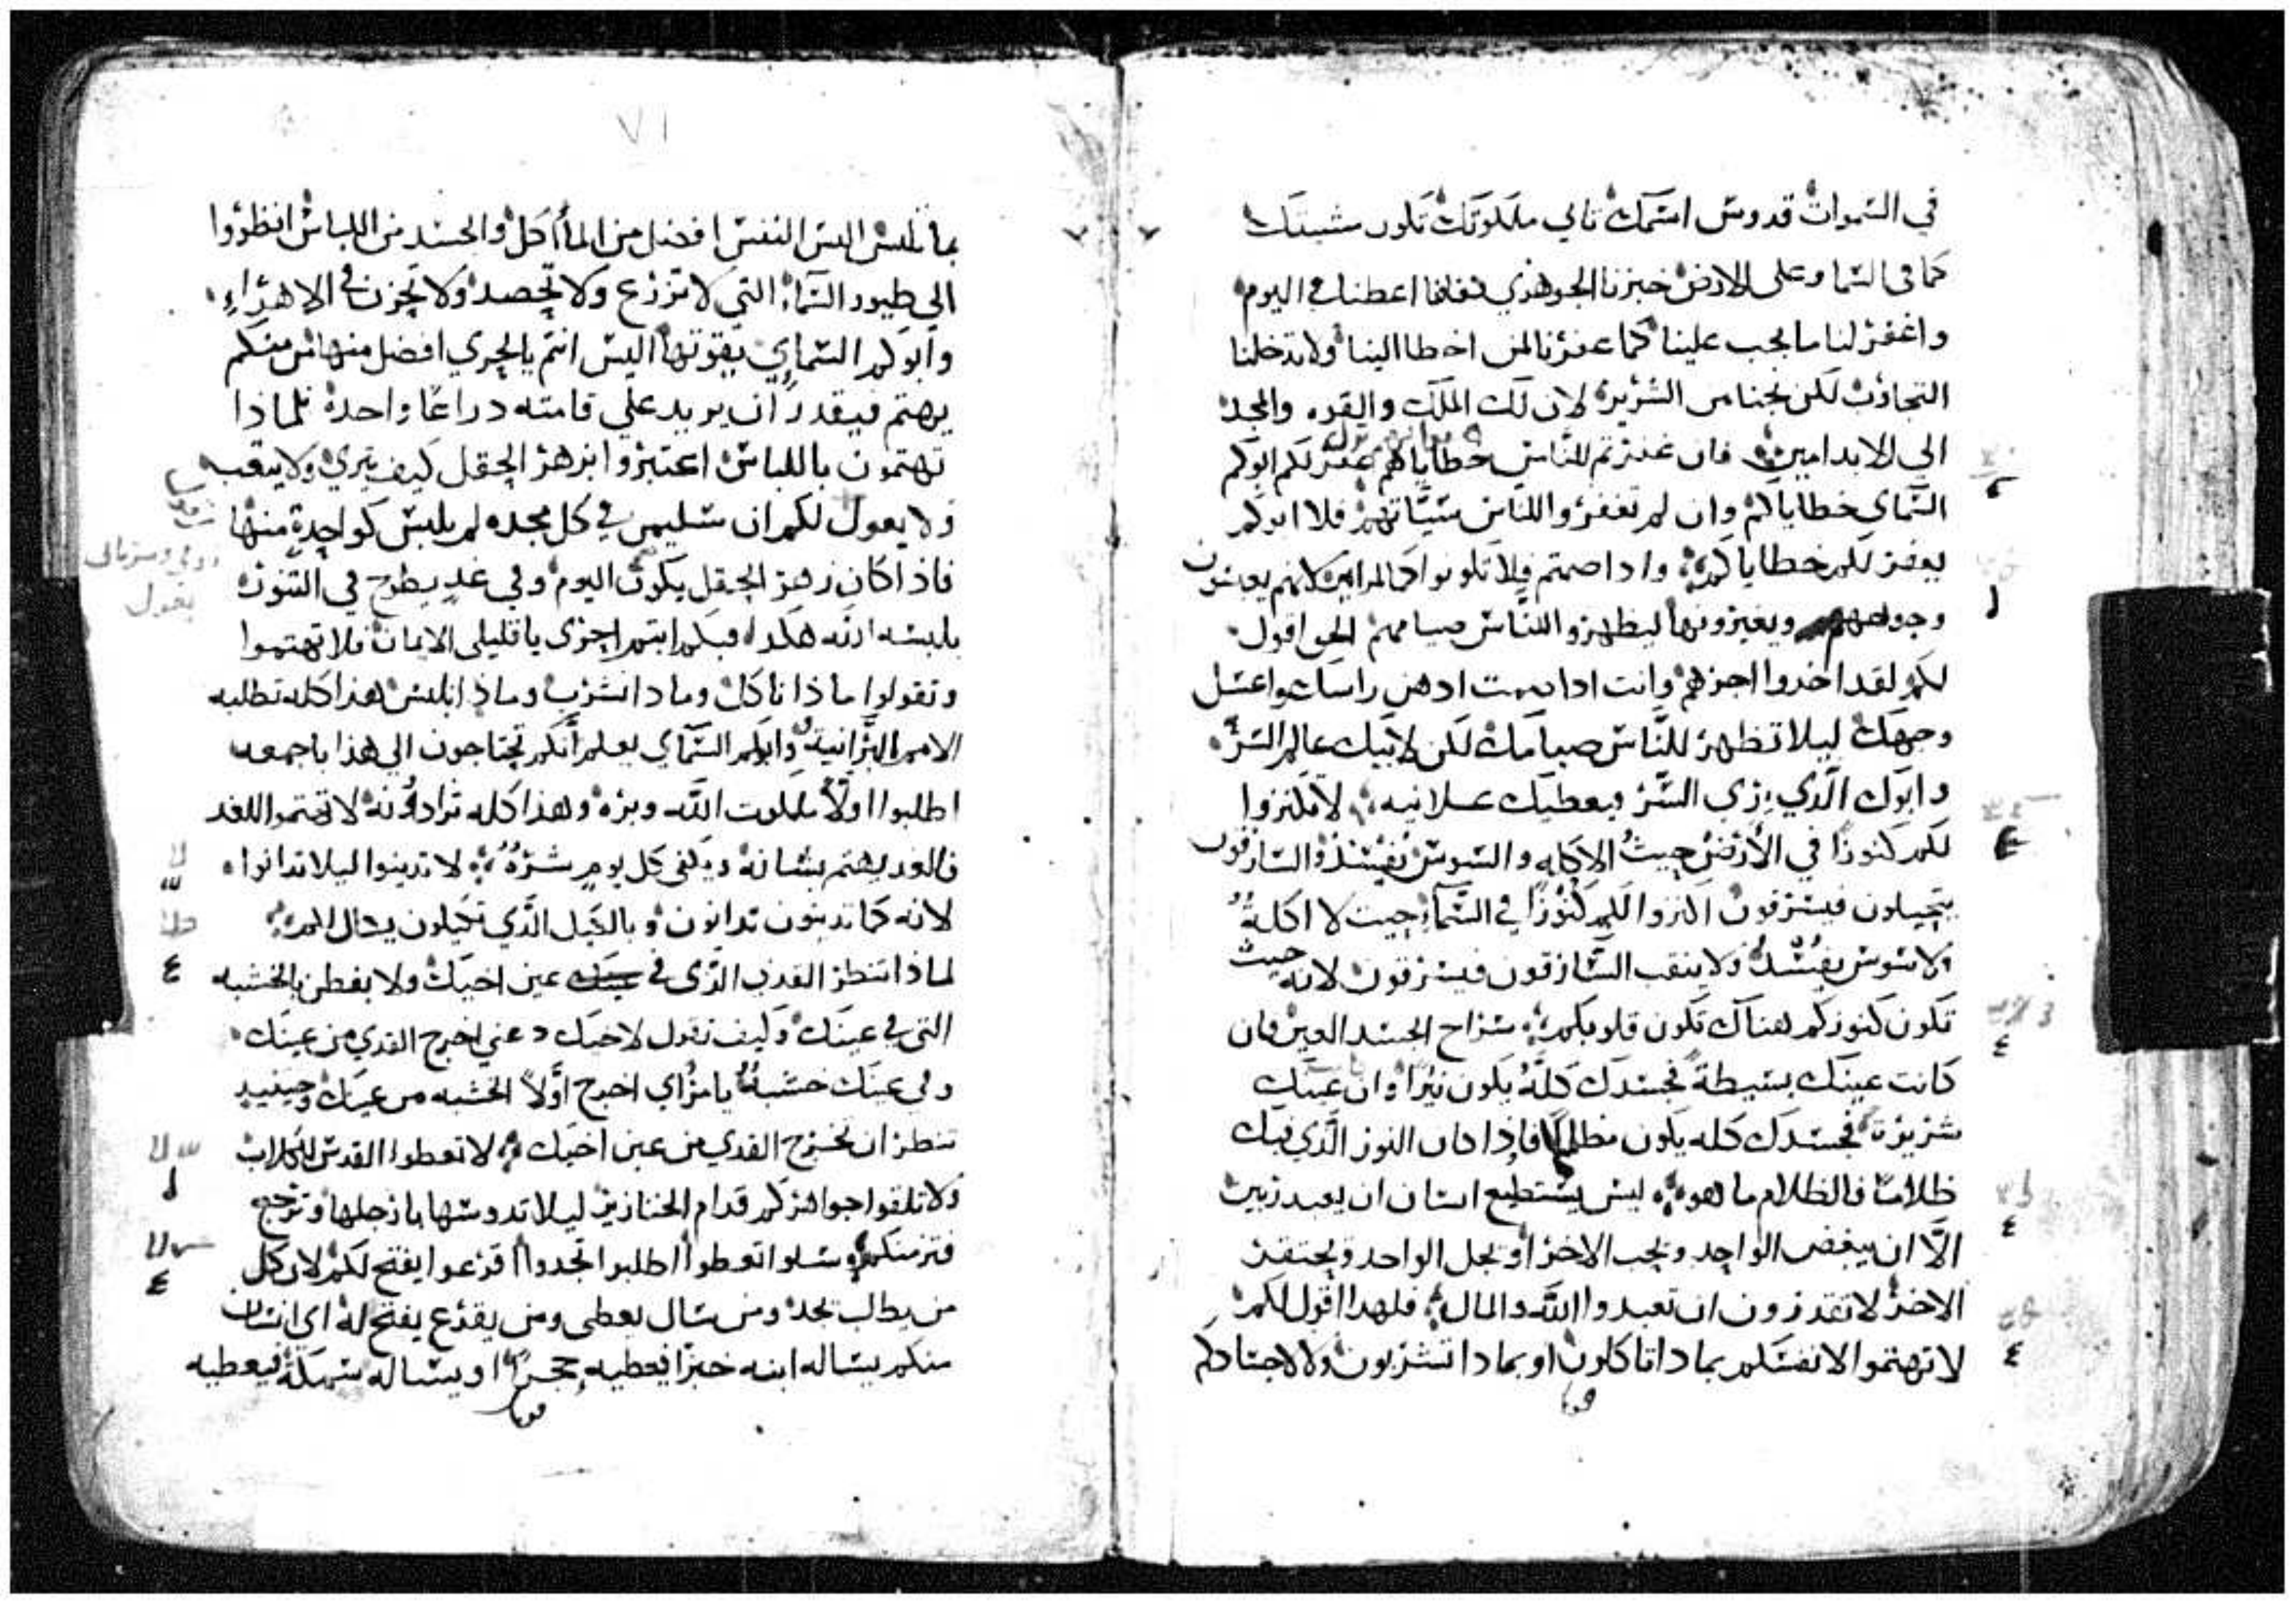 في السموات قدوس اسمك تاتي ملكوتك تكون مشيتك
كما في السما وعلى الارض خبزنا الجوهري كفافا اعطنا في اليوم
واغفر لنا ما يجب علينا كما غفرنا لمن اخطا الينا ولا تدخلنا
التجارب لكن نجنا من الشرير لان لك الملك والقوه والمجد
الي الابد امين فان غفرتم للناس خطاياهم غفر لكم ابوكم
السماي خطاياكم وان لم تغفروا للناس سيّاتهم فلا ابوكم
يغفر لكم خطاياكم واذا صمتم فلا تكونوا كالمرايين لانهم يعبسون
وجوههم ويغيرونها ليظهروا للناس صيامهم الحق اقول
لكم لقد اخدوا اجرهم وانت اذا صمت ادهن راسك واغسل
وجهك ليلا تظهر للناس صيامك لكن لابيك عالم السر
وابوك الّذي يري السّر يعطيك علانيه لا تكنزوا
لكم كنوزًا في الأرض حيثُ الاكله والسوس يفسد والسارقون
يتحيلون فيسرقون اكنزوا لكم كنُوزًا في السّمآء حيث لا اكلةُ
ولا سوس يفسد ولا ينقب السّارقون فيسرقون لانه حيث
تكون كنوزكم هناك تكون قلوبكم سراج الجسد العين فان
كانت عينك بسيطة فجسدك كلّهُ يكون نيرًا وان عينك
شريرة فجسدك كله يكون مظلمًا فاذا كان النور الّذي فيك
ظلامًا فالظلام ما هو ليس يستطيع انسان ان يعبد ربين
الّا ان يبغض الواحد ويحب الاخر او يجل الواحد ويحتقر
الاخر لا تقدرون ان تعبدوا اللّه والمال فلهدا اقول لكم
لا تهتموا لانفسكم بماداتاكلون او بمادا تشربون ولا لاجسادكم
٧١
بما تلبس اليس النفس افضل من المأاكل والجسد من اللباس انظرُوا
الى طيور السّماء التي لا تزرع ولا تحصد ولا تخزن في الاهرَاءِ
وابوكم السّماي يقوتها اليس انتم بالحري افضل منها من منكم
يهتم فيقدر ان يزيد علي قامته دراعًا واحدة فلماذا
تهتمون باللباس اعتبروا بزهر الحقل كيف يتربي ولا يتعب
ولا يعول لكم ان سليمن في كل مجده لم يلبس كواحدةٍ منها
فاذا كان زهر الحقل يكون اليوم وفي غدٍ يطرح في التنور
يلبسه اللّه هكدا فبكم انتم احرى يا قليلى الايمان فلا تهتموا
وتقولوا ماذا ناكل ومادا نشرب وماذا نلبس هذا كله تطلبه
الامم البرّانية وابوكم السّماي يعلم أنكم تحتاجون الي هذا باجمعه
اطلبوا اولًا ملكوت اللّه وبره وهذا كله تزادُونه لا تهتموا للغد
فالغد يهتم بشانه ويكفى كل يومٍ شرّهُ لا تدينوا ليلا تدانوا
لانه كما تدينون تدانون وبالكيل الّذي تكيلون يكال لكم
لماذا تنظر القدى الّذى في عين اخيك ولا تفطن بالخشبه
التى في عينك وكيف تقول لاخيك دعني اخرج القدي من عينك
وفي عينك خشبةُ يا مرُاي اخرج اوّلًا الخشبه من عينك وحينيد
تنظر ان تخرج القدي من عين اخيك لا تعطوا القدس للكلاب
ولا تلقوا جواهركم قدام الخنازير ليلا تدوسها بارجلها وترجع
فتزمنكم سلوا تعطوا اطلبوا تجدوا اقرعوا يفتح لكم لان كل
من يطلب يجد ومن سال يعطى ومن يقرع يفتح له اي انسان
منكم يساله ابنه خبزا فيعطيه حجرًا او يساله سمكة فيعطيه